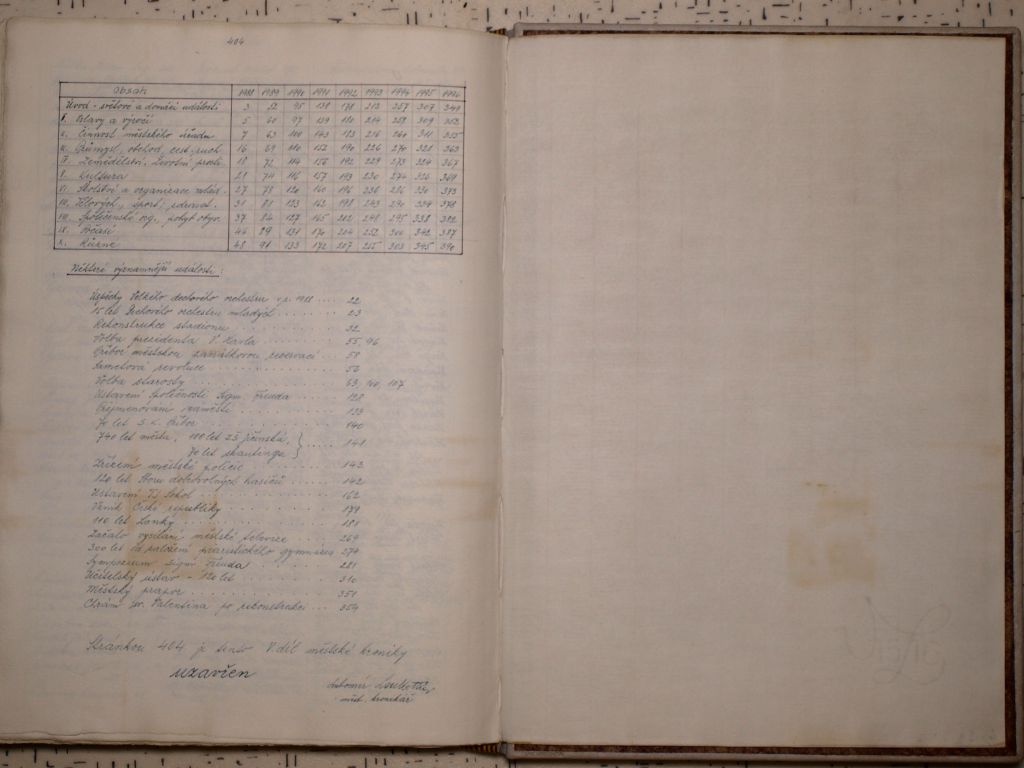 404
Obsah 1988 1989 1990 1991 1992 1993 1994 1995 1996
Úvod - světové a domácí události 3 52 95 138 178 212 257 307 349
I. Oslavy a výročí 5 60 97 139 180 214 258 309 352
II. Činnost městského úřadu 7 63 100 143 183 216 260 311 355
III. Průmysl, obchod, cest. ruch 16 69 110 152 190 226 270 321 363
IV. Zemědělství. Životní prostř. 18 72 114 156 192 229 273 324 367
V. Kultura 21 74 116 157 193 230 274 326 369
VI. Školství a organizace mlád. 27 78 120 160 196 236 286 330 373
VII. Tělových., sport, zdravot. 31 81 123 162 198 243 290 334 378
VIII. Společenské org., pohyb obyv. 37 84 127 165 202 248 295 338 382
IX. Počasí 46 89 131 170 204 252 300 342 387
X. Různé 48 91 133 172 207 255 303 345 390
Některé významnější události:
Úspěchy Velkého dechového orchestru v r. 1988 .... 22
15 let Dechového orchestru mladých ........ 23
Rekonstrukce stadionu ........ 32
Volba prezidenta V. Havla ........ 55, 96
Příbor městskou památkovou rezervací .... 58
Sametová revoluce ........ 52
Volba starosty ........ 63, 107
Ustavení Společnosti Sigm. Freuda ........ 128
Přejmenování náměstí ........ 139
70 let S.K. Příbor ........ 140
740 let města, 100 let ZŠ Jičínská, } .... 141
70 let skautingu }
Zřízení městské policie ........ 143
120 let Sboru dobrovolných hasičů ........ 142
Ustavení TJ Sokol ........ 162
Vznik České republiky ........ 179
110 let Lanky ........ 181
Začalo vysílání městské televize ........ 269
300 let od založení piaristického gymnázia 274
Sympozium Sigm. Freuda ........ 281
Učitelský ústav - 120 let ........ 310
Městský prapor ........ 351
Chrám sv. Valentina po rekonstrukci ... 354
Stránkou 404 je tento V. díl městské kroniky
uzavřen
Lubomír
měst. kronikář